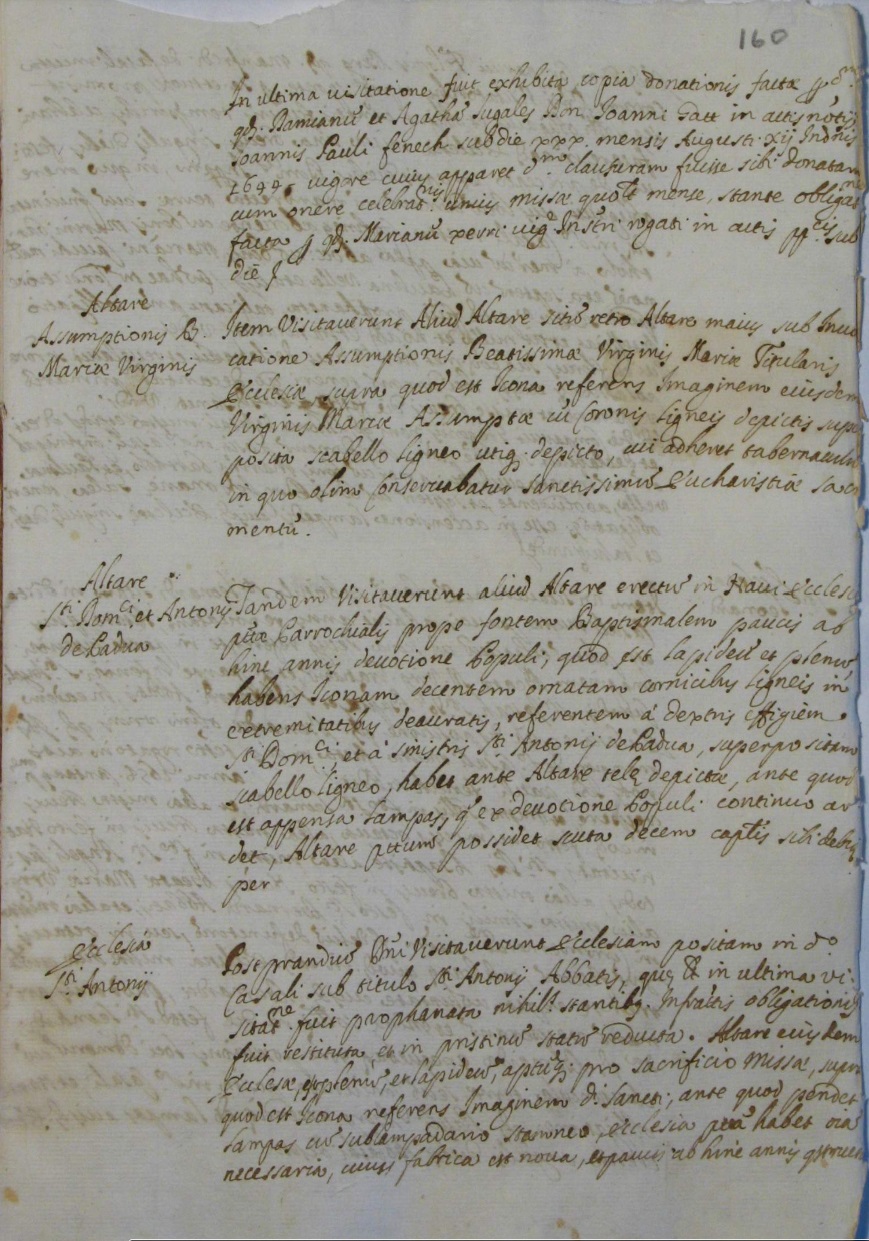 160
In ultima visitatione fuit exhibita copia donationis factæ
qd. Damianū et Agathā Jugales Bon Joanni Gatt in actis notrij
Joannis Pauli fenech sub die xxx. mensis Augusti xij Indnis
1699. vigre cuius apparet dmo clausuram fuisse sibi donatam
cum onere celebratnis unius missæ quolt mense, stante obligatne
facta qd. Marianū xerri vigr Instri rogati in actis ppcis sub
die
Altare
Assumptionis B.
Mariæ Virginis
Item Visitaverunt Aliud Altare sitū retro Altare maius sub Invo
catione Assumptionis Beatissimæ Virginis Mariæ Titularis
Ecclesiæ supra quod est Icona referens Imaginem eiusdem
Virginis Mariæ Assumptæ cū Coronis ligneis depictis super
posita scabello ligneo utiq. depicto, cui adheret tabernaculū
in quo olim Conservabatur Sanctissimū Eucharistiæ Sacra
mentū.
Altare
Sti Domci et Antonij
de Padua
Tandem Visitaverunt aliud Altare erectū in Navi Ecclesiæ
quæ Parrochialis prope fontem Baptismalem paucis ab
hinc annis devotione Populi, quod est lapideū et plenū
habens Iconam decentem ornatam cornicibus ligneis in
extremitatibus deauratis, referentem á dextris effigiem
Sti Domci, et á sinistris Sti Antonij de Padua, superpositam
scabello ligneo, habet ante Altare telę depictæ, ante quod
est appensa lampas, quę ex devocione Populi continuo ar
det, Altare ptum possidet scuta decem captis sibi debita
per
Ecclesia
Sti Antonij
Post prandiū Dni Visitaverunt Ecclesiam positam in do
Casali sub titulo Sti Antonij Abbatis, quę et in ultima vi
sitatne fuit prophanata nihilt stantibq. Infractis obligationibus
fuit restituta et in pristinū statū reducta. Altare eiusdem
Ecclesæ, est plenū, et lapideū, aptūq. pro sacrificio Missæ, supra
quod est Icona referens Imaginem di Sancti, ante quod pendet
lampas cū sublampadario stamneo, Ecclesia ptta habet oia
necessaria, cuius fabrica est nova, et paucis ab hinc annis qstructa